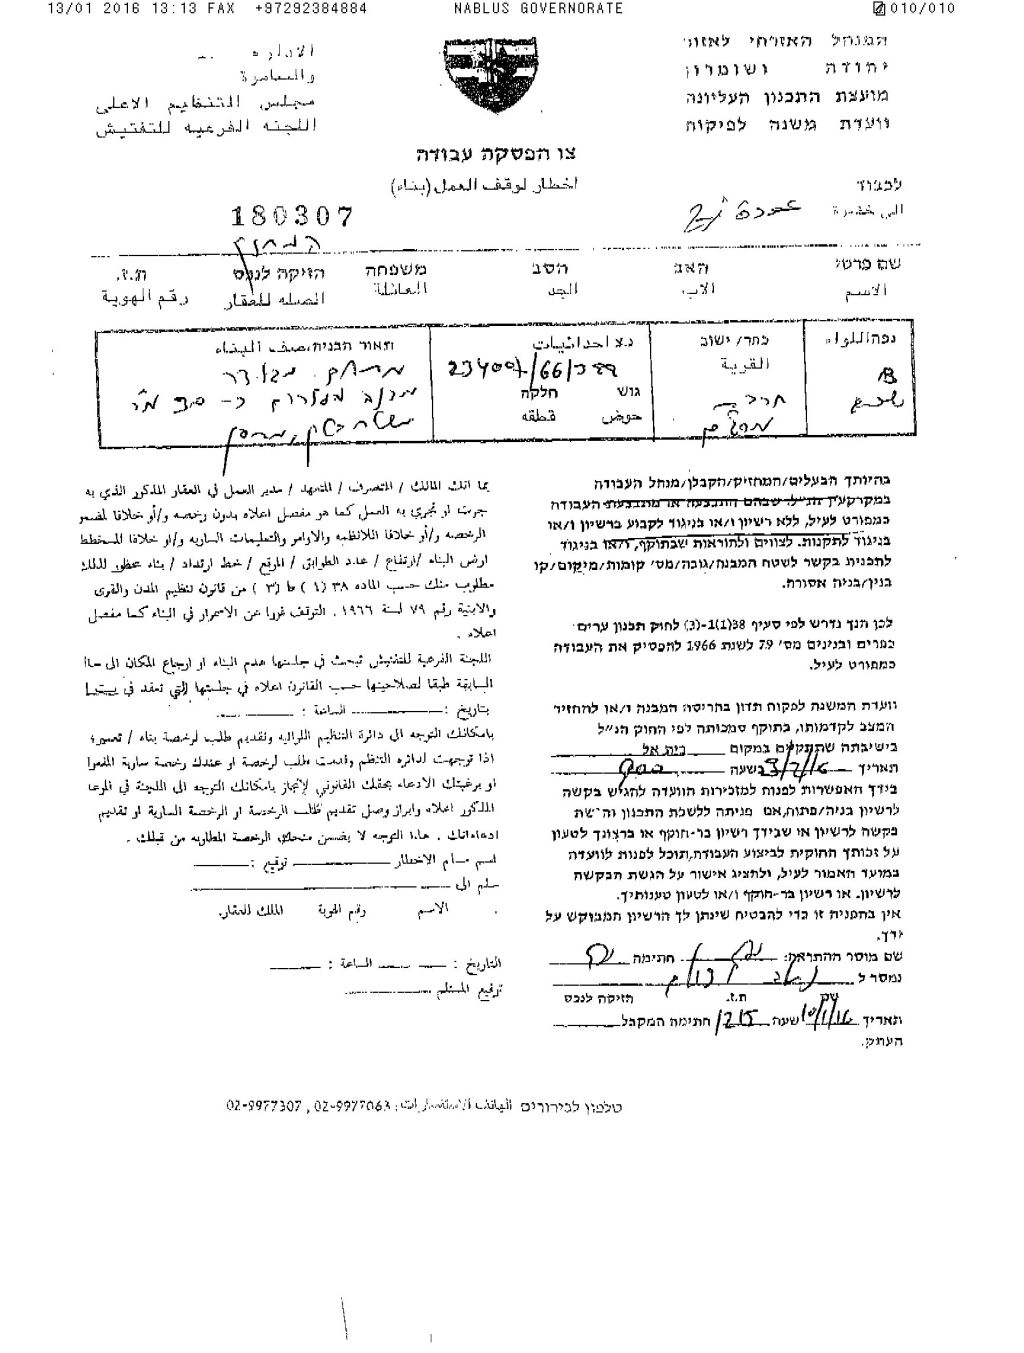 13/01 2016 13:13 FAX +97292384884 NABLUS GOVERNORATE 010/010
המנהל האזרחי לאזור
יהודה ושומרון
מועצת התכנון העליונה
וועדת משנה לפיקוח
الاداره
والسامرة
مجلس التنظيم الاعلى
اللجنه الفرعيه للتفتيش
צו הפסקה עבודה
اخطار لوقف العمل (بناء)
לכבוד
الى حضرة
عودة
180307
שם פרטי האב הסב משפחה הזיקה לנכס ת.ז.
الاسم الاب الجد العائلة الصله للعقار رقم الهوية
נפה/اللواء כפר/ישוב נ.צ احداثيات תאור הבניה/صف البناء
القرية
גוש חלקה
حوض قطعه
בהיותך הבעלים/המחזיק/הקבלן/מנהל העבודה
במקרקעין הנ"ל, שבהם התבצעה או מתבצעת העבודה
כמפורט לעיל, ללא רשיון ו/או בניגוד לקבוע ברשיון ו/או
בניגוד לתקנות. לצווים ולהוראות שבתוקף, ו/או בניגוד
לתכנית בקשר לשטח המבנה/גובה/מס' קומות/מיקום/קו
בנין/בניה אסורה.
לכן הנך נדרש לפי סעיף 38(1)-(3) לחוק תכנון ערים
כפרים ובנינים מס' 79 לשנת 1966 להפסיק את העבודה
כמפורט לעיל.
וועדת המשנה לפקוח תדון בהריסה המבנה ו/או להחזיר
המצב לקדמותו, בתוקף סמכותה לפי החוק הנ"ל
בישיבתה שתתקיים במקום בית אל
תאריך בשעה 900
בידך האפשרות לפנות למזכירות הוועדה להגיש בקשה
לרשיון בניה/פתוח, אם פניתה ללשכת התכנון והגשת
בקשה לרשיון או שבידך רשיון בר-תוקף או ברצונך לטעון
על זכותך החוקית לביצוע העבודה, תוכל לפנות לוועדה
במועד האמור לעיל, ולהציג אישור על הגשת הבקשה
לרשיון. או רשיון בר-תוקף ו/או לטעון טענותיך.
אין בהפניה זו כדי להבטיח שינתן לך הרשיון המבוקש על
ידך.
שם מוסר ההתראה: חתימה
נמסר ל
שם ת.ז. הזיקה לנכס
תאריך שעה 1215 חתימה המקבל
העתק.
بما انك المالك / المتصرف / المتعهد / مدير العمل في العقار المذكور الذي به
جرت او تجري به العمل كما هو مفصل اعلاه بدون رخصه و/أو خلافا لمضمون
الرخصه و/أو خلافا للانظمه والاوامر والتعليمات الساريه و/او خلافا للمخطط
ارض البناء /ارتفاع / عدد الطوابق / الموقع / خط ارتداد / بناء محظور لذلك
مطلوب منك حسب الماده ٣٨ (١) ط (٣) من قانون تنظيم المدن والقرى
والابنية رقم ٧٩ لسنة ١٩٦٦. التوقف فورا عن الاستمرار في البناء كما مفصل
اعلاه .
اللجنة الفرعية للتفتيش تبحث في جلستها هدم البناء او ارجاع المكان الى حالته
السابقة طبقا لصلاحيتها حسب القانون اعلاه في جلستها التي تعقد في
بتاريخ : الساعة :
بامكانك التوجه الى دائرة التنظيم اللوائيه وتقديم طلب لرخصة بناء / تعمير؛
اذا توجهت لدائره التنظيم وقدمت طلب لرخصة او عندك رخصة سارية المفعول
او برغبتك الادعاء بحقك القانوني لإنجاز بامكانك التوجه الى اللجنة في الموعد
المذكور اعلاه وابراز وصل تقديم طلب الرخصة او الرخصة السارية او تقديم
ادعاءاتك . هذا التوجه لا يضمن منحك الرخصة المطلوبه من قبلك .
اسم مسلم الاخطار توقيع :
سلم الى
الاسم رقم الهوية المالك للعقار.
التاريخ : الساعة :
توقيع المستلم
טלפון לבירורים الهاتف للاستفسارات: 02-9977063, 02-9977307